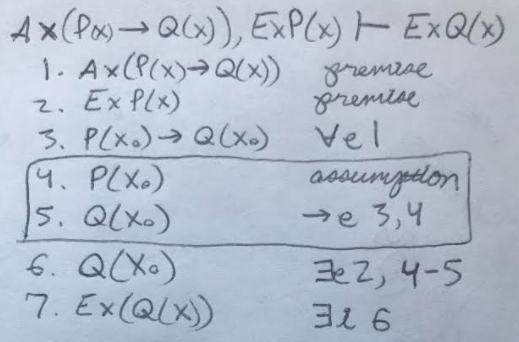 Ax(P(x) → Q(x)), ExP(x) ⊢ ExQ(x)
1. Ax(P(x)→Q(x)) premise
2. Ex P(x) premise
3. P(x₀) → Q(x₀) ∀e1
4. P(x₀) assumption
5. Q(x₀) →e 3,4
6. Q(x₀) ∃e2, 4-5
7. Ex(Q(x)) ∃i 6